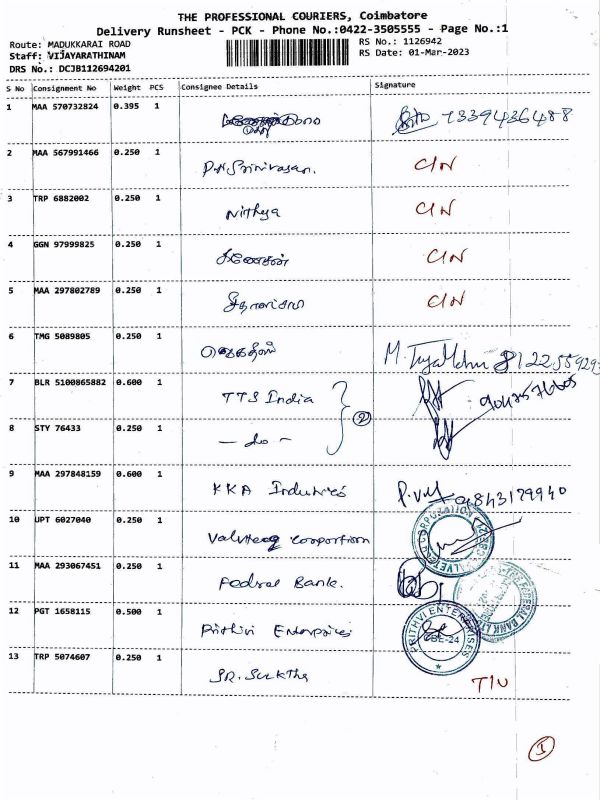 THE PROFESSIONAL COURIERS, Coimbatore
Delivery Runsheet - PCK - Phone No.:0422-3505555 - Page No.:1
Route: MADUKKARAI ROAD
RS No.: 1126942
Staff: VIJAYARATHINAM
RS Date: 01-Mar-2023
DRS No.: DCJB112694201
S No Consignment No Weight PCS Consignee Details Signature
1 MAA 570732824 0.395 1 7339436488
2 MAA 567991466 0.250 1 P.N. Srinivasan. CIN
3 TRP 6882002 0.250 1 Nithya CIN
4 GGN 97999825 0.250 1 கணேசன் CIN
5 MAA 297802789 0.250 1 CIN
6 TMG 5089805 0.250 1
7 BLR 5100865882 0.600 1 TTS India
2
8 STY 76433 0.250 1 - do -
9 MAA 297848159 0.600 1 KKA Industries P.V.M 9843179940
10 UPT 6027040 0.250 1 Valvetec corporation
11 MAA 293067451 0.250 1 Fedral Bank.
12 PGT 1658115 0.500 1 Prithivi Enterprises
PRITHVI ENTERPRISES
CBE-24
13 TRP 5074607 0.250 1 TIU
1